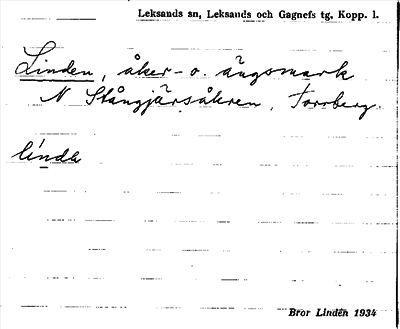 Leksands sn, Leksands och Gagnefs tg, Kopp. l.
Linden, åker- o. ängsmark
N Stångjärsåkren, Torrberg.
linda
Bror Lindén 1934